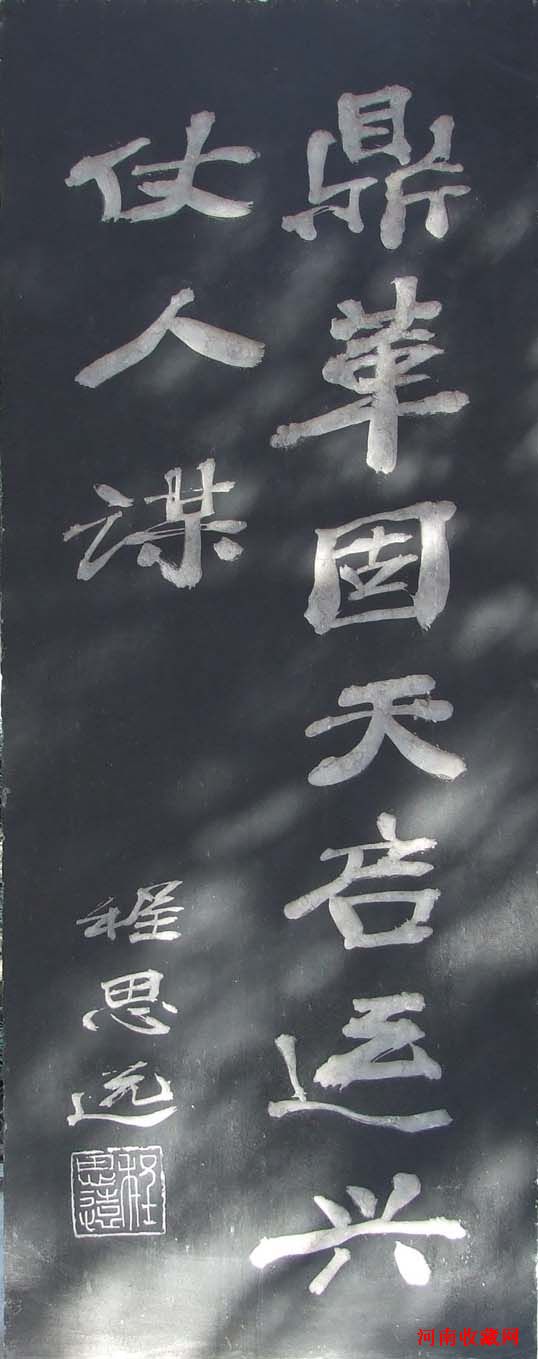 鼎革固天启运兴
仗人谋
程思远
程思远
河南收藏网